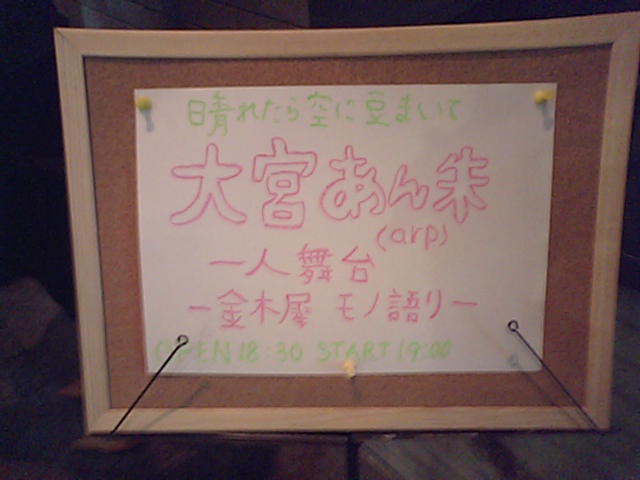 晴れたら空に豆まいて
大宮あん朱
(arp)
一人舞台
ー金木屋 モノ語りー
OPEN 18:30 START 19:00